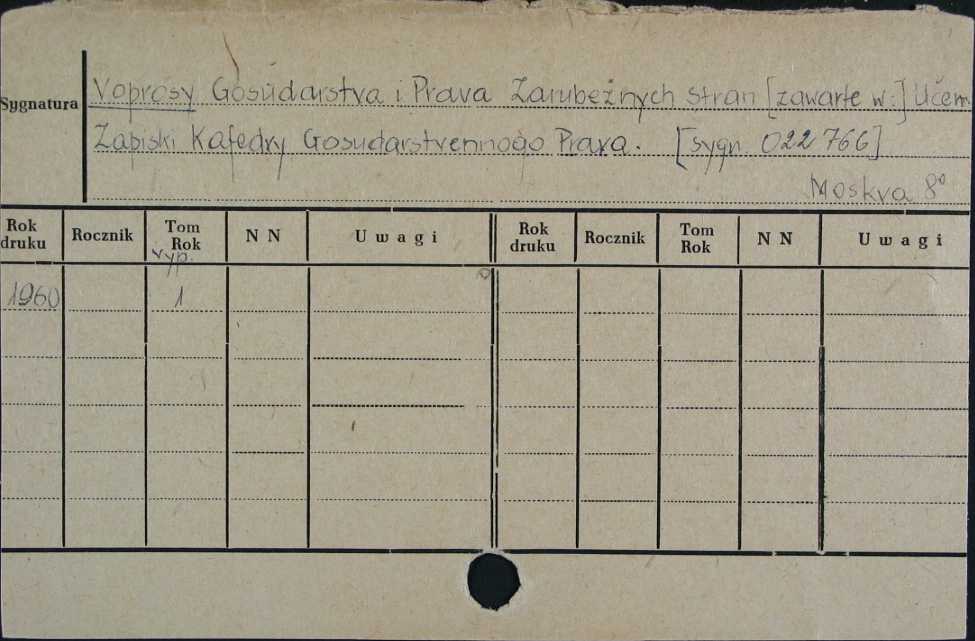 Sygnatura
Voprosy Gosudarstva i Prava Zarubežnych stran [zawarte w:] Učen.
Zapiski Kafedry Gosudarstvennogo Prava. [sygn. 022 766]
Moskva 8°
Rok druku Rocznik Tom Rok N N Uwagi Rok druku Rocznik Tom Rok N N Uwagi
vyp.
1960 1